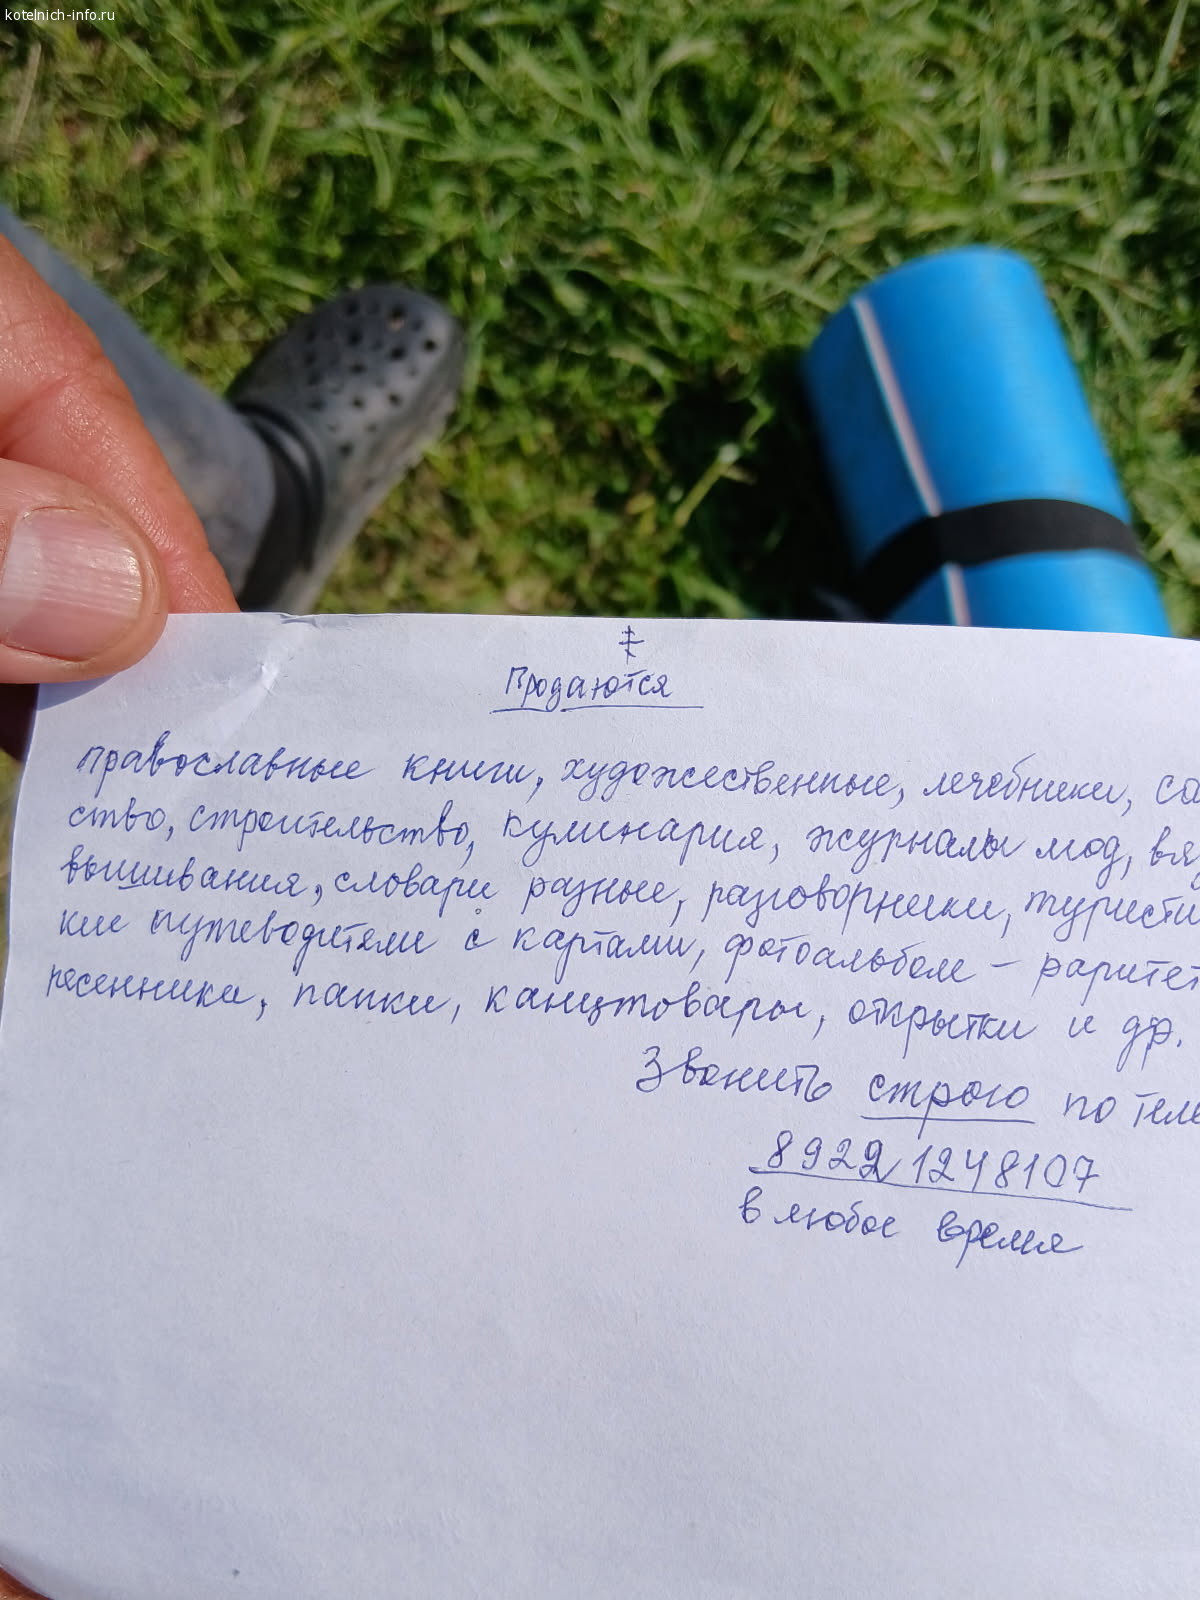 kotelnich-info.ru
☦
Продаются
православные книги, художественные, лечебники, са
ство, строительство, кулинария, журналы мод, вя
вышивания, словари разные, разговорники, туристи
кие путеводители с картами, фотоальбом – раритет
песенники, папки, канцтовары, открытки и др.
Звонить строго по теле
89221248107
в любое время